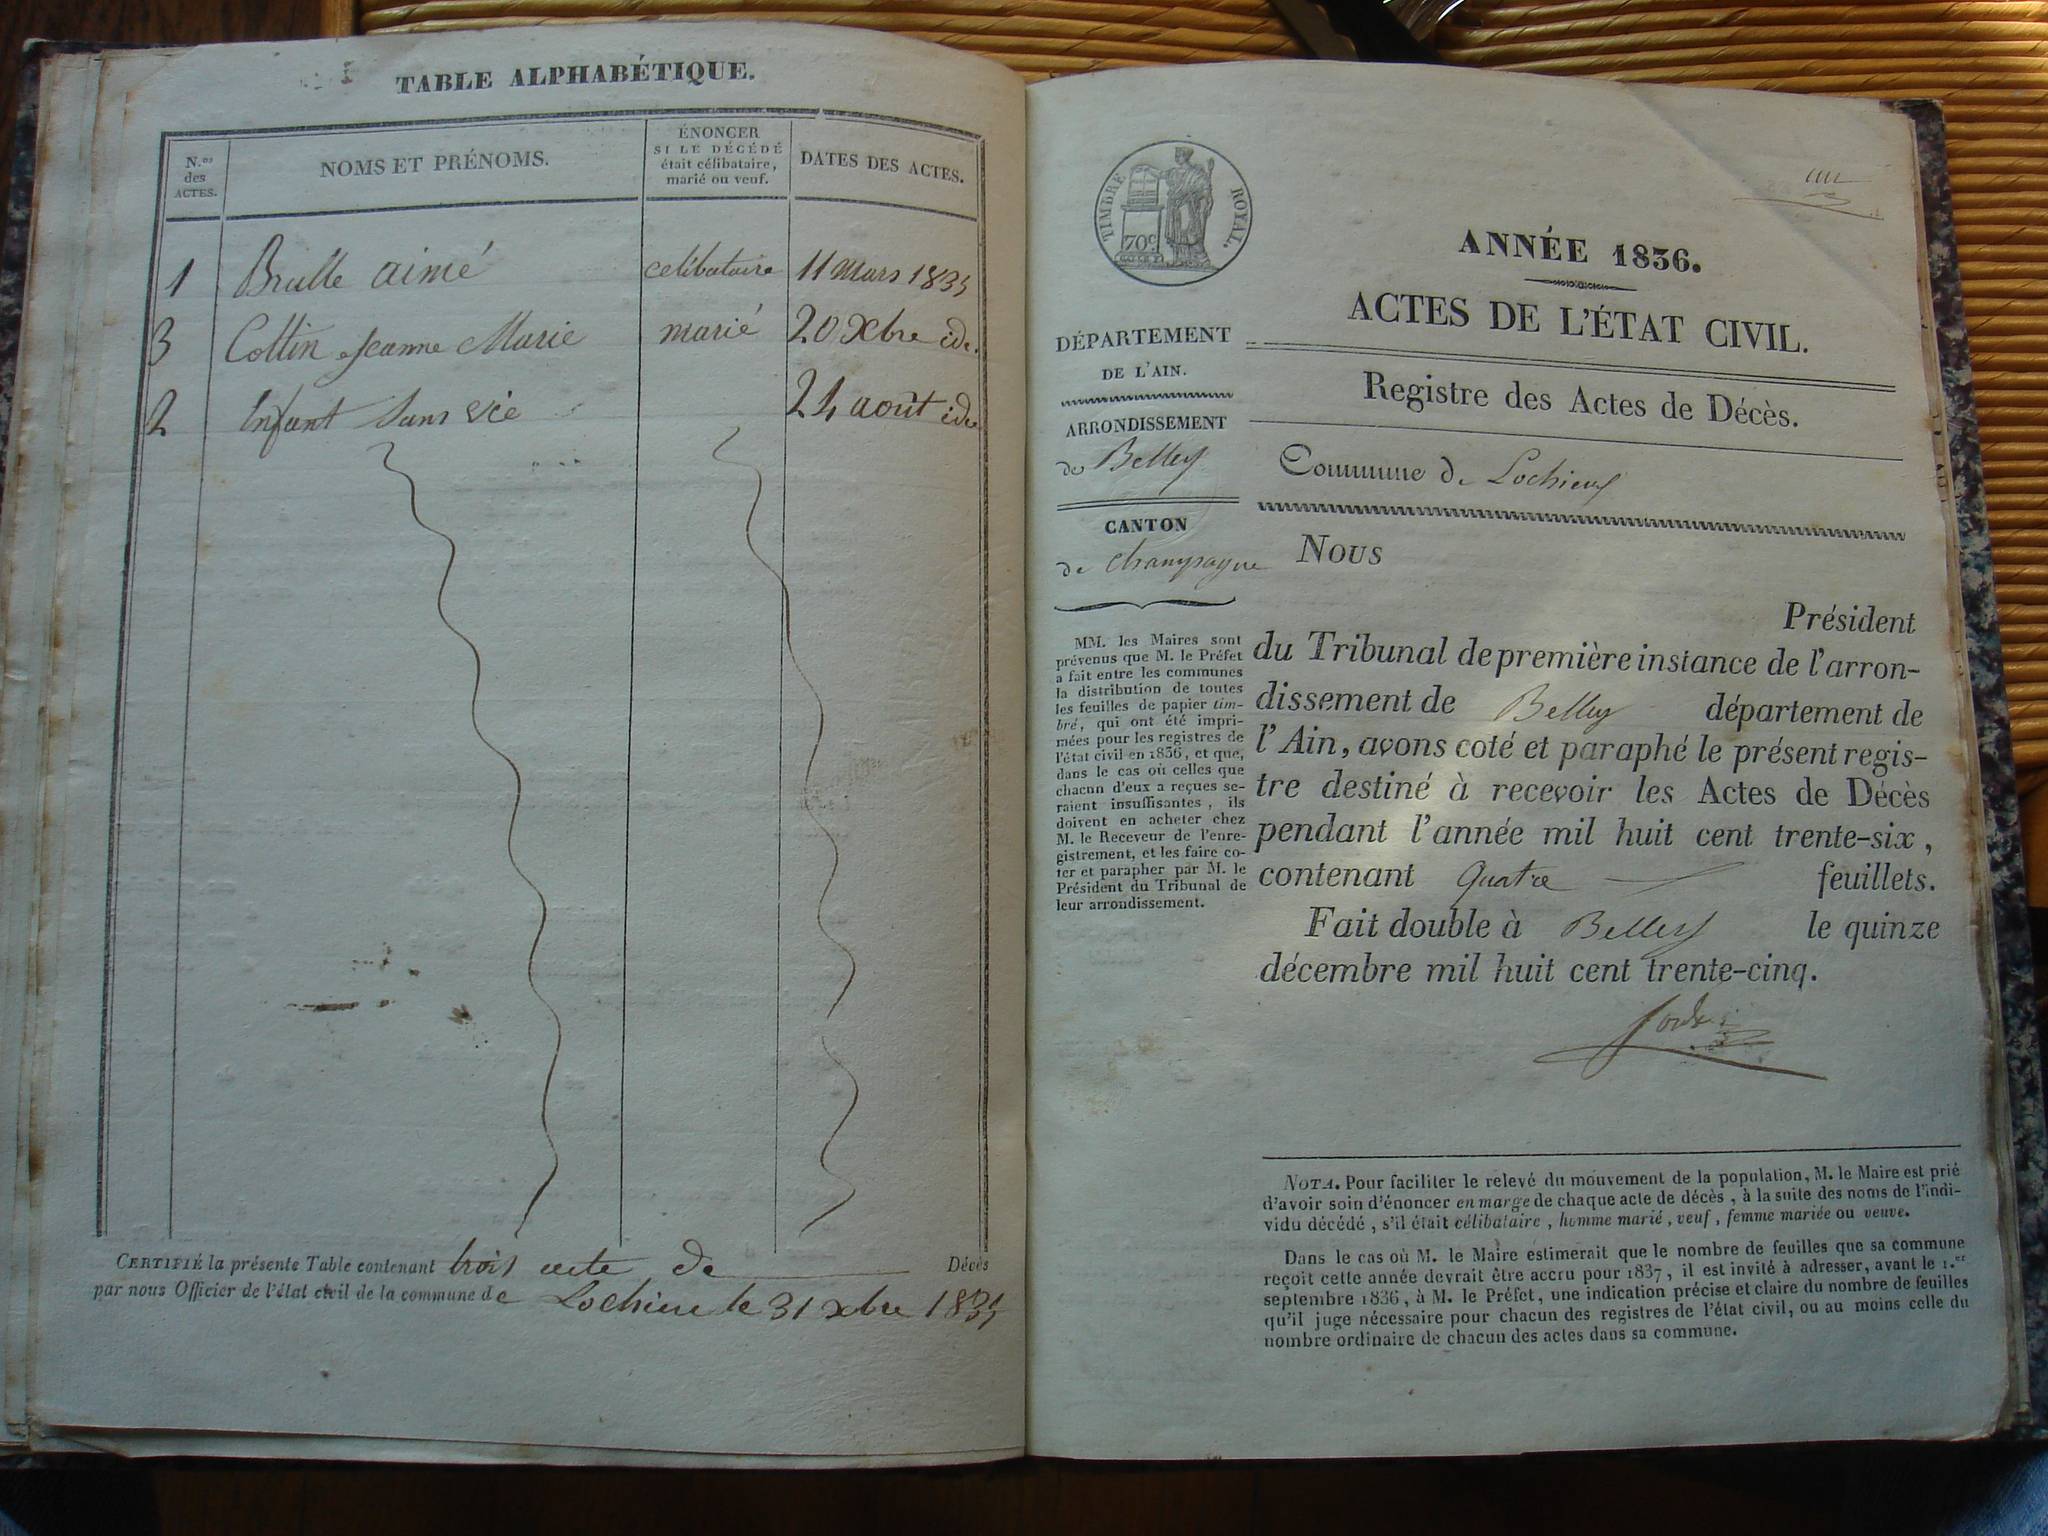 TABLE ALPHABÉTIQUE.
N.os des ACTES.
NOMS ET PRÉNOMS.
ÉNONCER
SI LE DÉCÉDÉ
était célibataire,
marié ou veuf.
DATES DES ACTES.
1 Brulle aimé celibataire 11 Mars 1835
3 Collin Jeanne Marie marié 20 Xbre id.
2 Enfant Sans vie 24 août id.
CERTIFIÉ la présente Table contenant trois acte de Décès
par nous Officier de l'état civil de la commune de Lochieu le 31 xbre 1835
TIMBRE ROYAL.
70c
un
ANNÉE 1836.
ACTES DE L'ÉTAT CIVIL.
Registre des Actes de Décès.
Commune de Lochieu
DÉPARTEMENT
DE L'AIN.
ARRONDISSEMENT
de Belley
CANTON
de champagne
MM. les Maires sont
prévenus que M. le Préfet
a fait entre les communes
la distribution de toutes
les feuilles de papier tim-
bré, qui ont été impri-
mées pour les registres de
l'état civil en 1836, et que,
dans le cas où celles que
chacun d'eux a reçues se-
raient insuffisantes, ils
doivent en acheter chez
M. le Receveur de l'enre-
gistrement, et les faire co-
ter et parapher par M. le
Président du Tribunal de
leur arrondissement.
Nous
Président
du Tribunal de première instance de l'arron-
dissement de Belley département de
l'Ain, avons coté et paraphé le présent regis-
tre destiné à recevoir les Actes de Décès
pendant l'année mil huit cent trente-six,
contenant Quatre feuillets.
Fait double à Belley le quinze
décembre mil huit cent trente-cinq.
NOTA. Pour faciliter le relevé du mouvement de la population, M. le Maire est prié
d'avoir soin d'énoncer en marge de chaque acte de décès, à la suite des noms de l'indi-
vidu décédé, s'il était célibataire, homme marié, veuf, femme mariée ou veuve.
Dans le cas où M. le Maire estimerait que le nombre de feuilles que sa commune
reçoit cette année devrait être accru pour 1837, il est invité à adresser, avant le 1.er
septembre 1836, à M. le Préfet, une indication précise et claire du nombre de feuilles
qu'il juge nécessaire pour chacun des registres de l'état civil, ou au moins celle du
nombre ordinaire de chacun des actes dans sa commune.